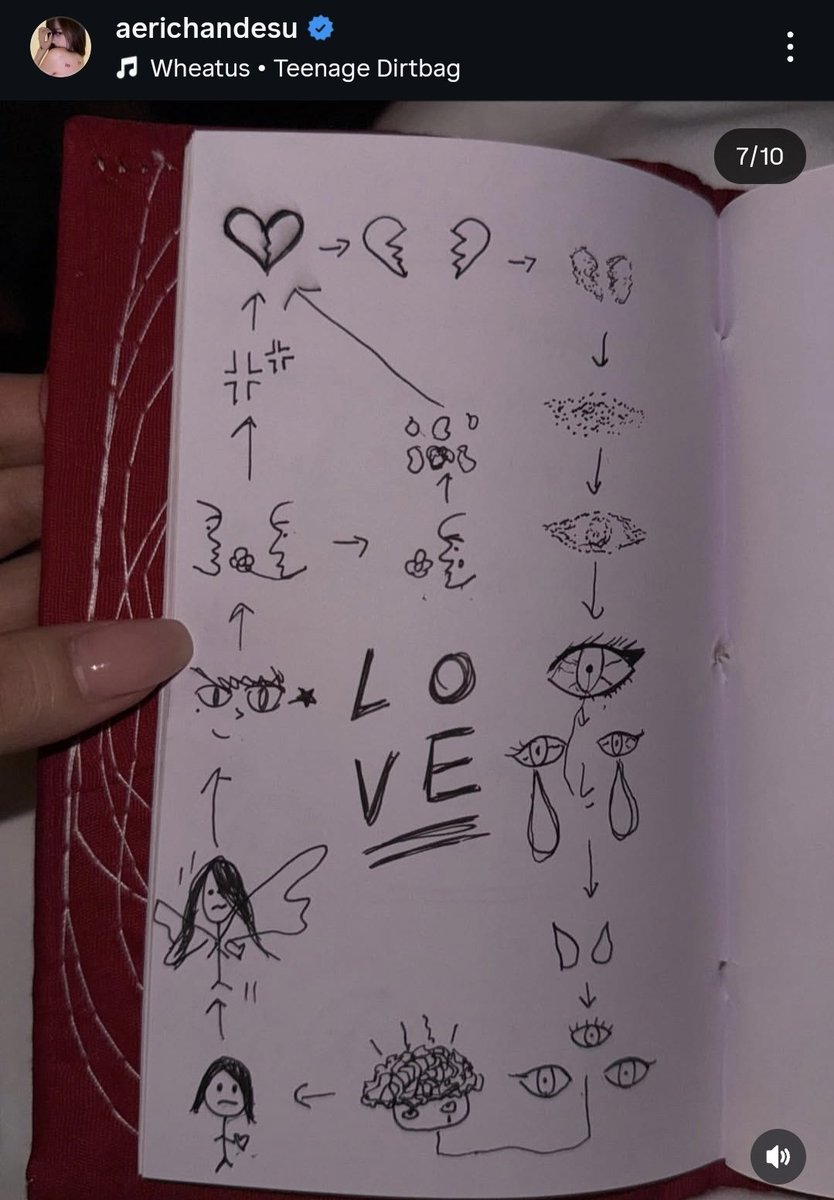 aerichandesu
Wheatus • Teenage Dirtbag
7/10
L O
V E